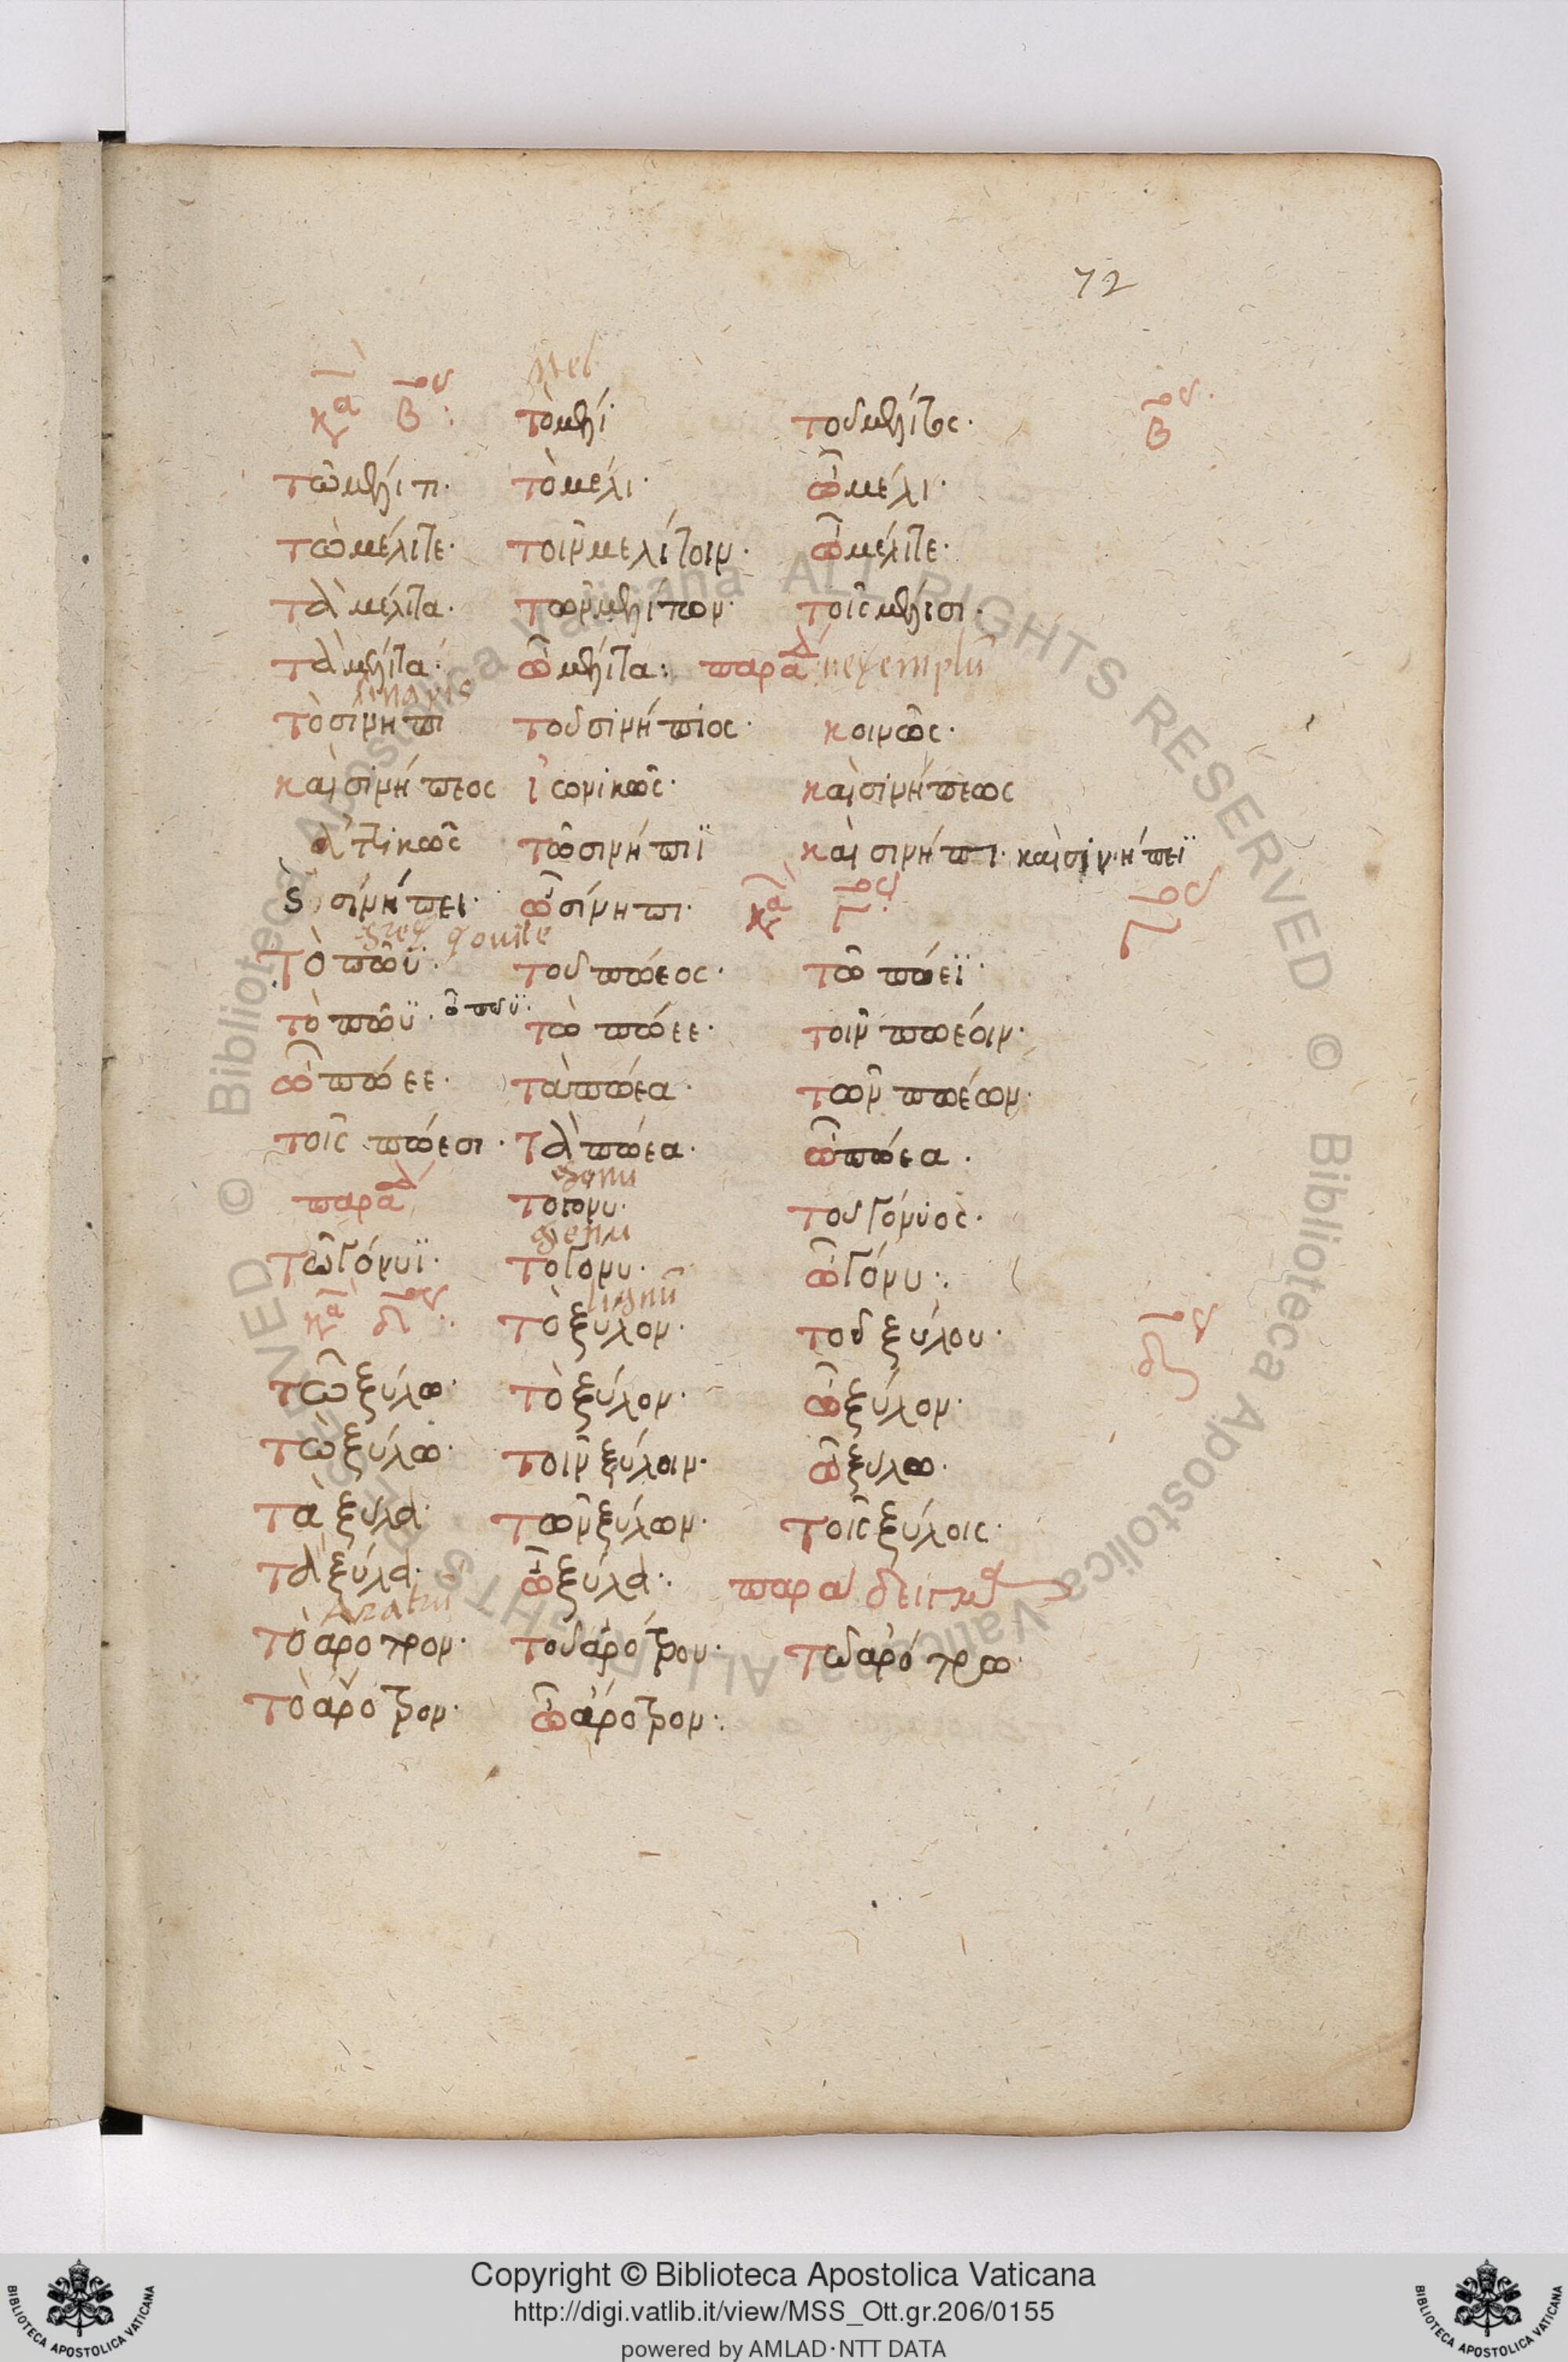 72
mel
κα β ος : τὸ μέλι· τοῦ μέλιτος· β ος·
τῶ μέλιτι· τὸ μέλι· ὦ μέλι·
τὼ μέλιτε· τοῖν μελίτοιν· ὦ μέλιτε·
τὰ μέλιτα· τῶν μελίτων· τοῖς μέλισι·
τὰ μέλιτα· ὦ μέλιτα: παρά δ exemplu
sinapis
τὸ σίνηπι τοῦ σινήπιος· κοινῶς·
καὶ σινήπεος ἰωνικῶς· καὶ σινήπεως
ἀττικῶς τῶ σινήπιϊ καὶ σινήπι· καὶ σινήπεϊ
σινήπει· ὦ σίνηπι· κα γ ος· γ ος
greg q ouile
Τὸ πῶϋ· τοῦ πώεος· τῶ πώεϊ·
τὸ πῶϋ· ὦ πῶϋ· τὼ πώεε· τοῖν πωέοιν·
ὦ πώεε· τὰ πώεα· τῶν πωέων·
τοῖς πώεσι· τὰ πώεα· ὦ πώεα·
παρά δ genu
το γονυ· τοῦ γόνυος·
genu
τῶ γόνυϊ· το γονυ· ὦ γόνυ:·
lignu
κα δ ος:· τὸ ξύλον· τοῦ ξύλου· δ ος
τῶ ξύλω· τὸ ξύλον· ὦ ξύλον·
τὼ ξύλω· τοῖν ξύλοιν· ὦ ξύλω·
τὰ ξύλα· τῶν ξύλων· τοῖς ξύλοις·
τὰ ξύλα· ὦ ξύλα:· παράδειγμα
Aratru
τὸ ἄροτρον· τοῦ ἀρότρου· τῶ ἀρότρω·
τὸ ἄροτρον· ὦ ἄροτρον:·
© Biblioteca Apostolica Vaticana ALL RIGHTS RESERVED © Biblioteca Apostolica Vaticana ALL RIGHTS RESERVED
BIBLIOTECA APOSTOLICA VATICANA
Copyright © Biblioteca Apostolica Vaticana
http://digi.vatlib.it/view/MSS_Ott.gr.206/0155
powered by AMLAD·NTT DATA
BIBLIOTECA APOSTOLICA VATICANA